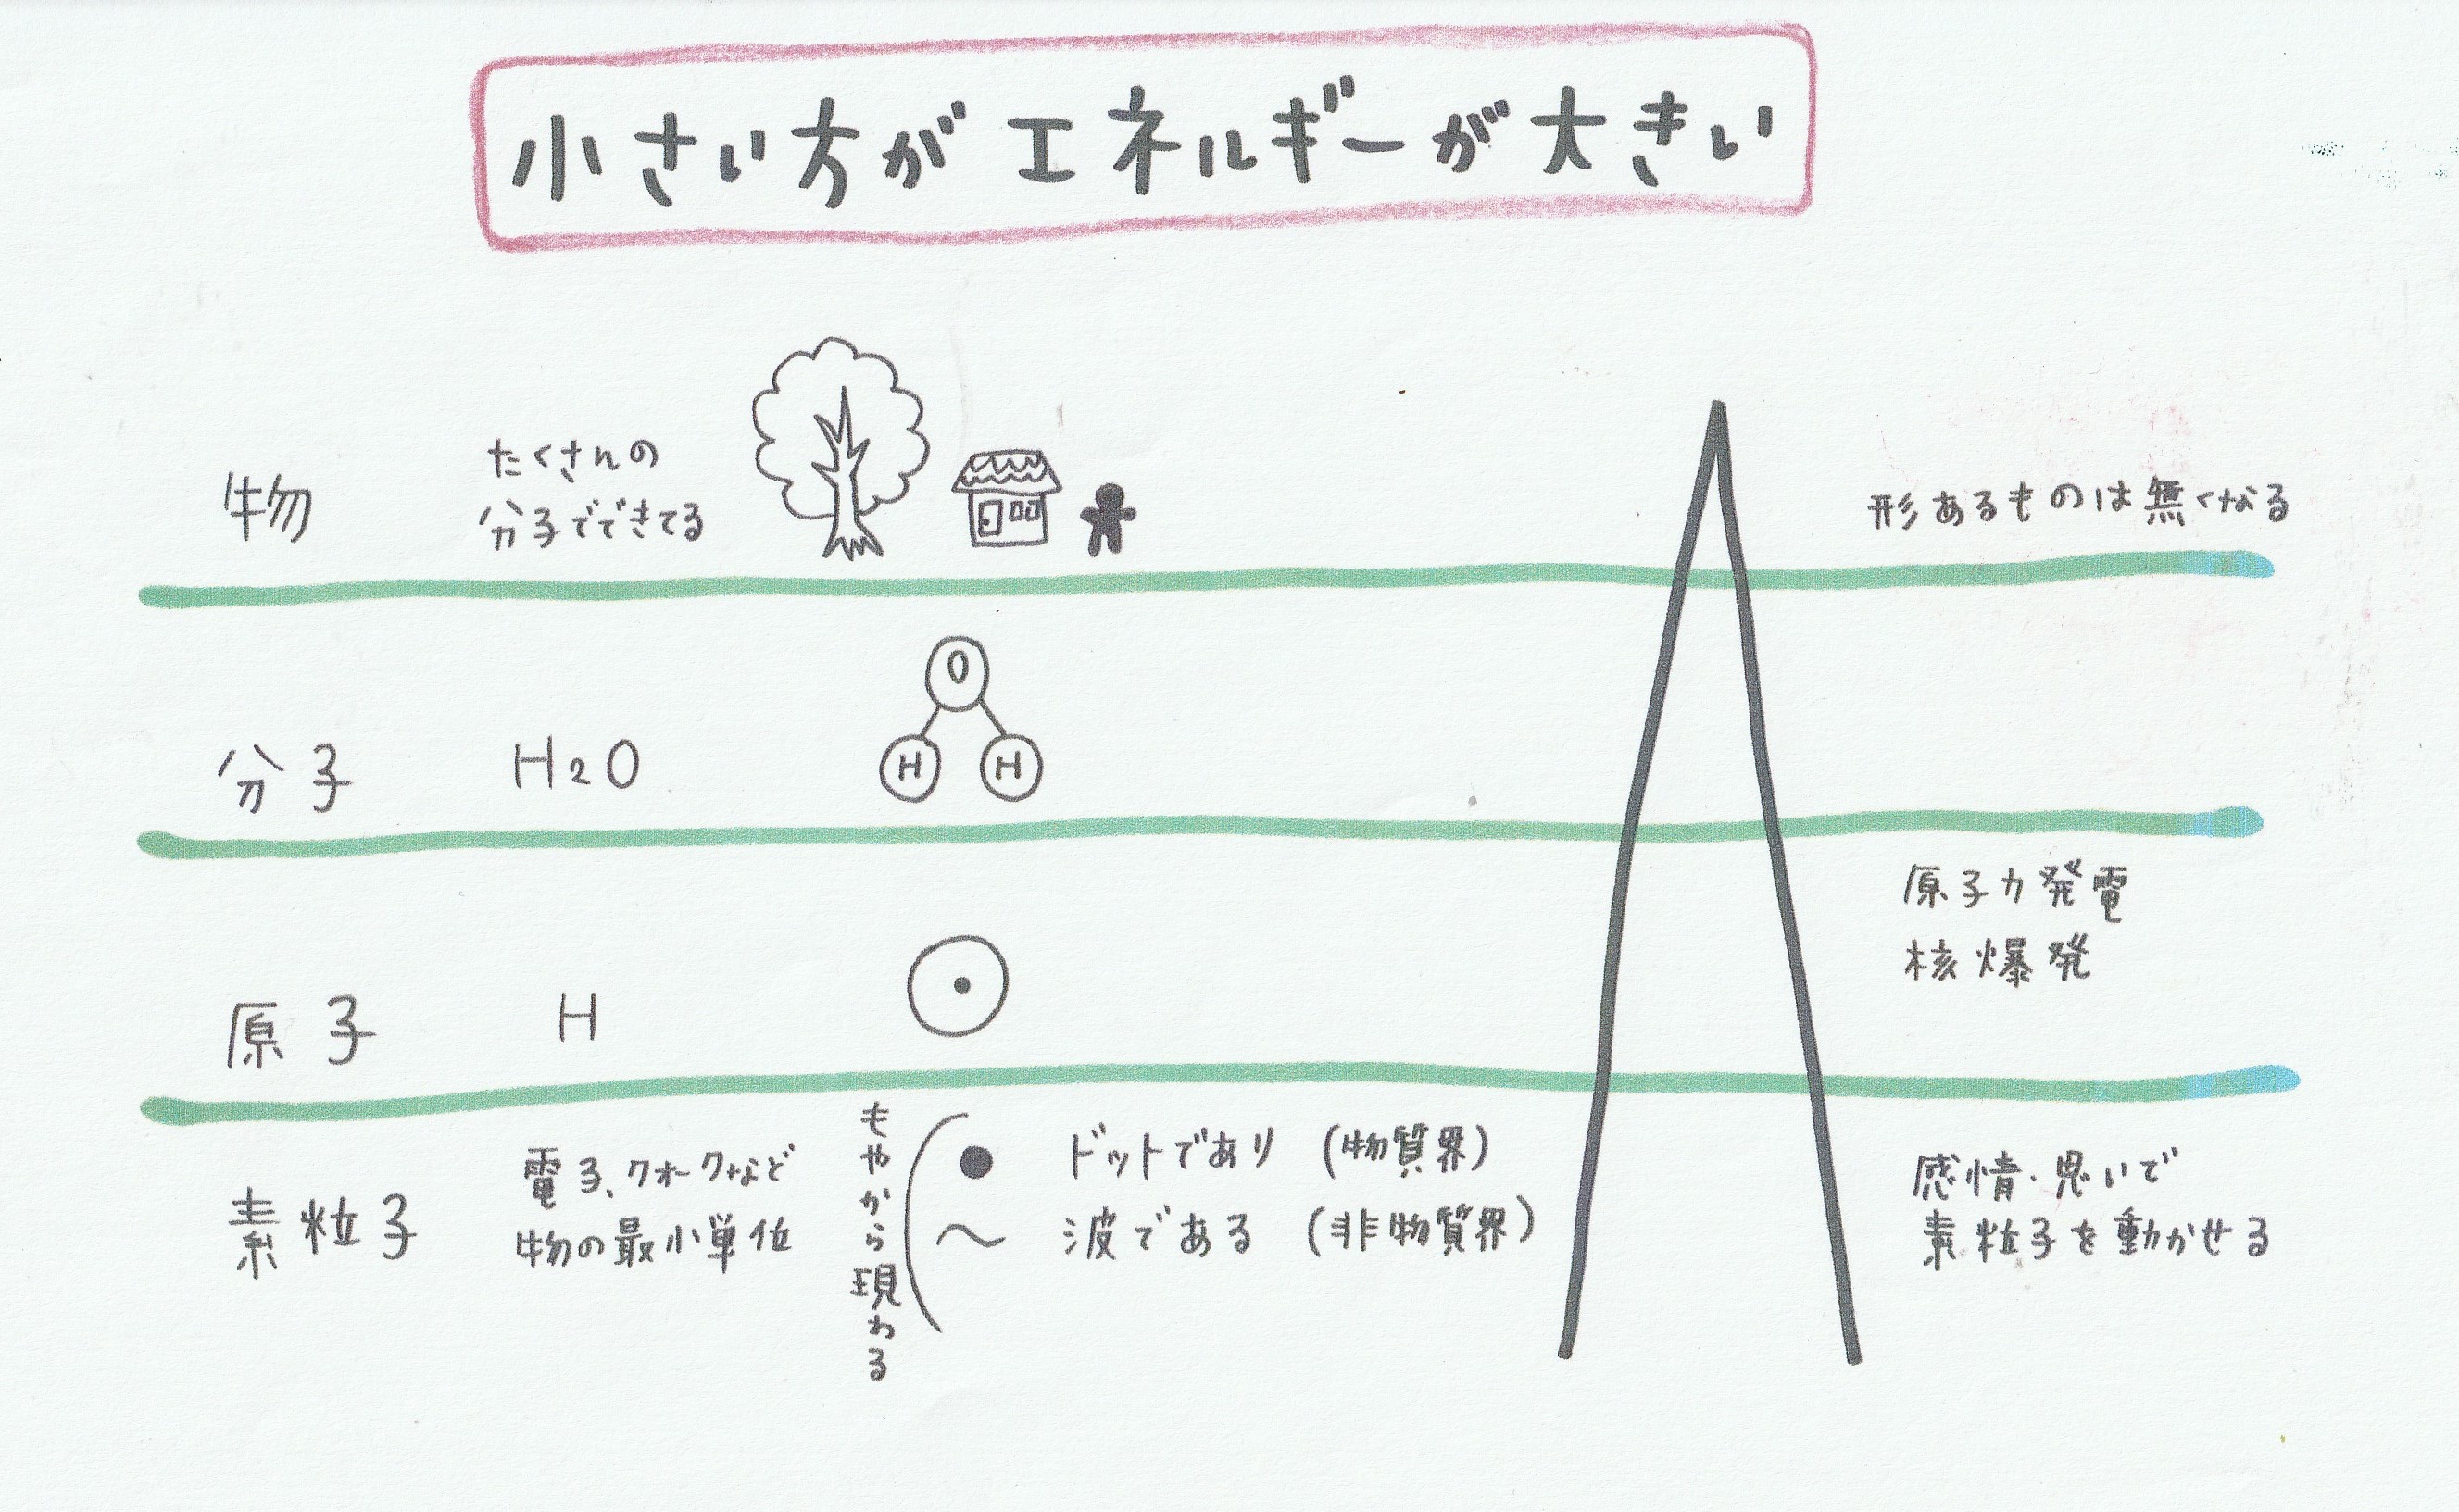 小さい方がエネルギーが大きい
物
たくさんの
分子でできてる
形あるものは無くなる
分子
H₂O
O
H
H
原子
H
原子力発電
核爆発
素粒子
電子、クオークなど
物の最小単位
もやから現わる
ドットであり (物質界)
波である (非物質界)
感情・思いで
素粒子を動かせる